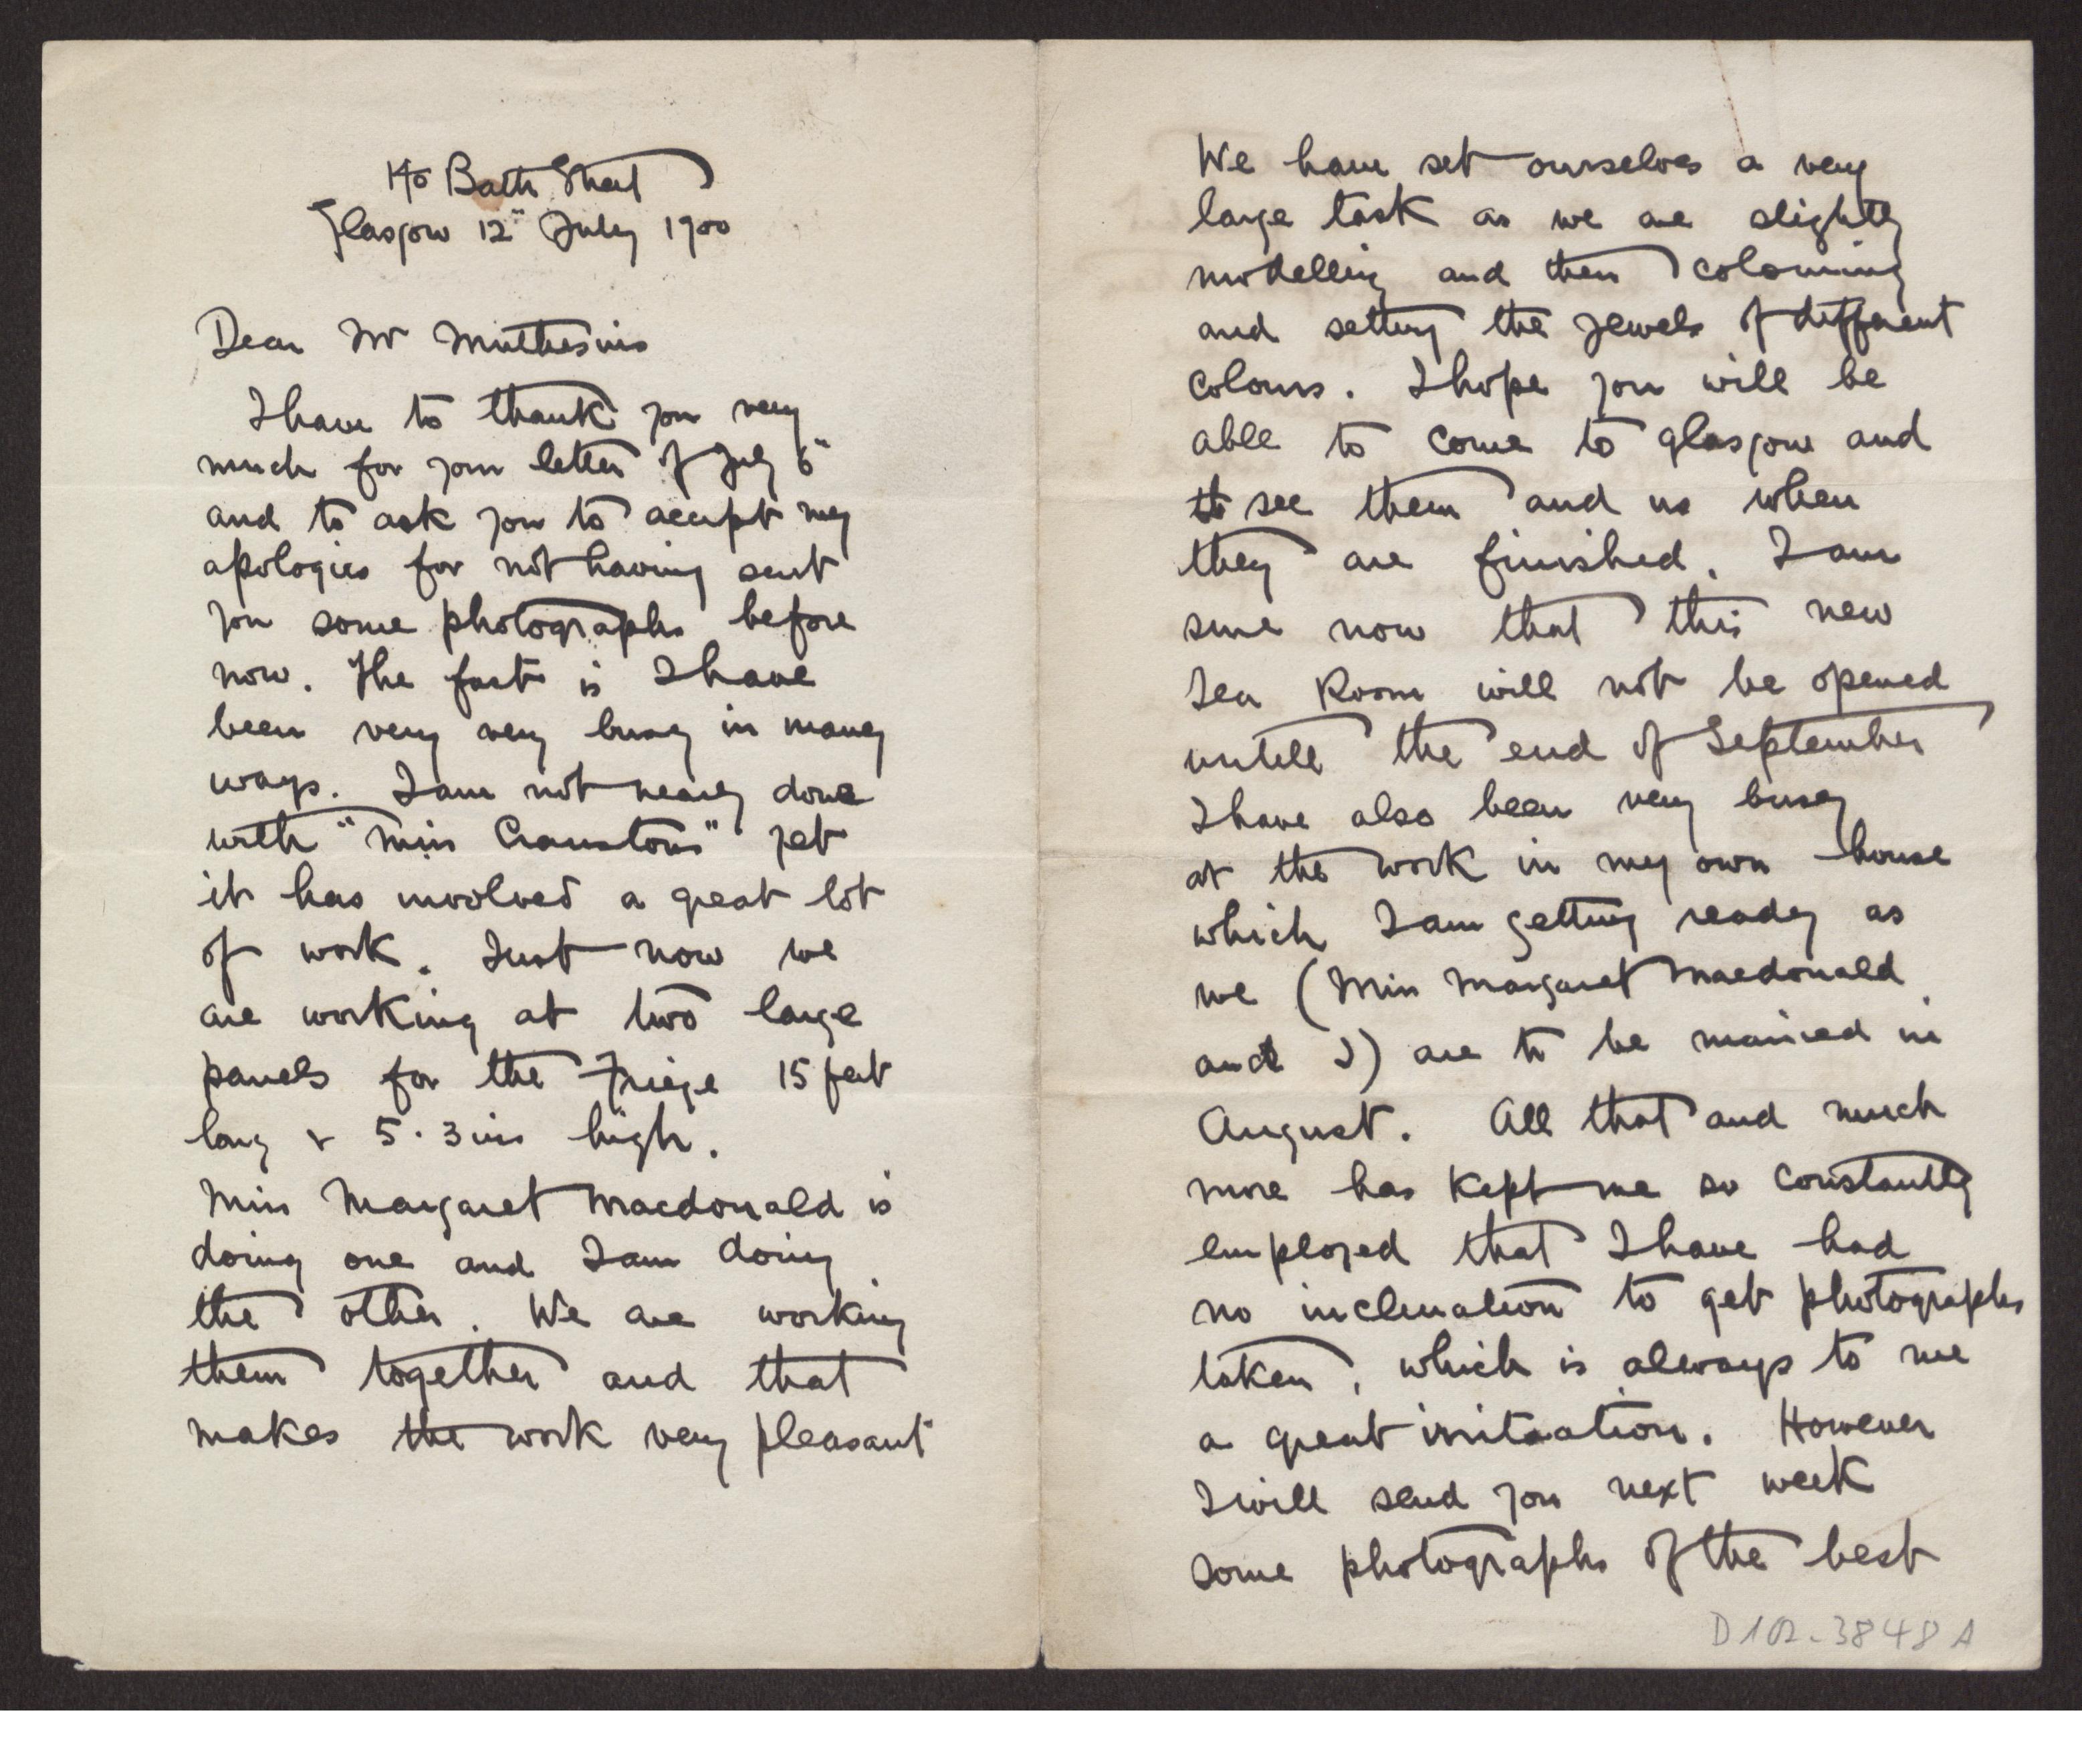 140 Bath Street
Glasgow 12" July 1900
Dear Mr Muthesius
I have to thank you very
much for your letter of July 6"
and to ask you to accept my
apologies for not having sent
you some photographs before
now. The fact is I have
been very very busy in many
ways. I am not nearly done
with "Miss Cranstons" yet
it has involved a great lot
of work. Just now we
are working at two large
panels for the Frieze 15 feet
long & 5.3ins high.
Miss Margaret Macdonald is
doing one and I am doing
the other. We are working
them together and that
makes the work very pleasant
We have set ourselves a very
large task as we are slightly
modelling and then colouring
and setting the jewels of different
colours. I hope you will be
able to come to Glasgow and
to see them and us when
they are finished. I am
sure now that this new
Tea Room will not be opened
untill the end of September
I have also been very busy
at the work in my own house
which I am getting ready as
we (Miss Margaret Macdonald
and I) are to be married in
August. All that and much
more has kept me so constantly
employed that I have had
no inclination to get photographs
taken, which is always to me
a great irritation. However
I will send you next week
some photographs of the best
D102-3848A